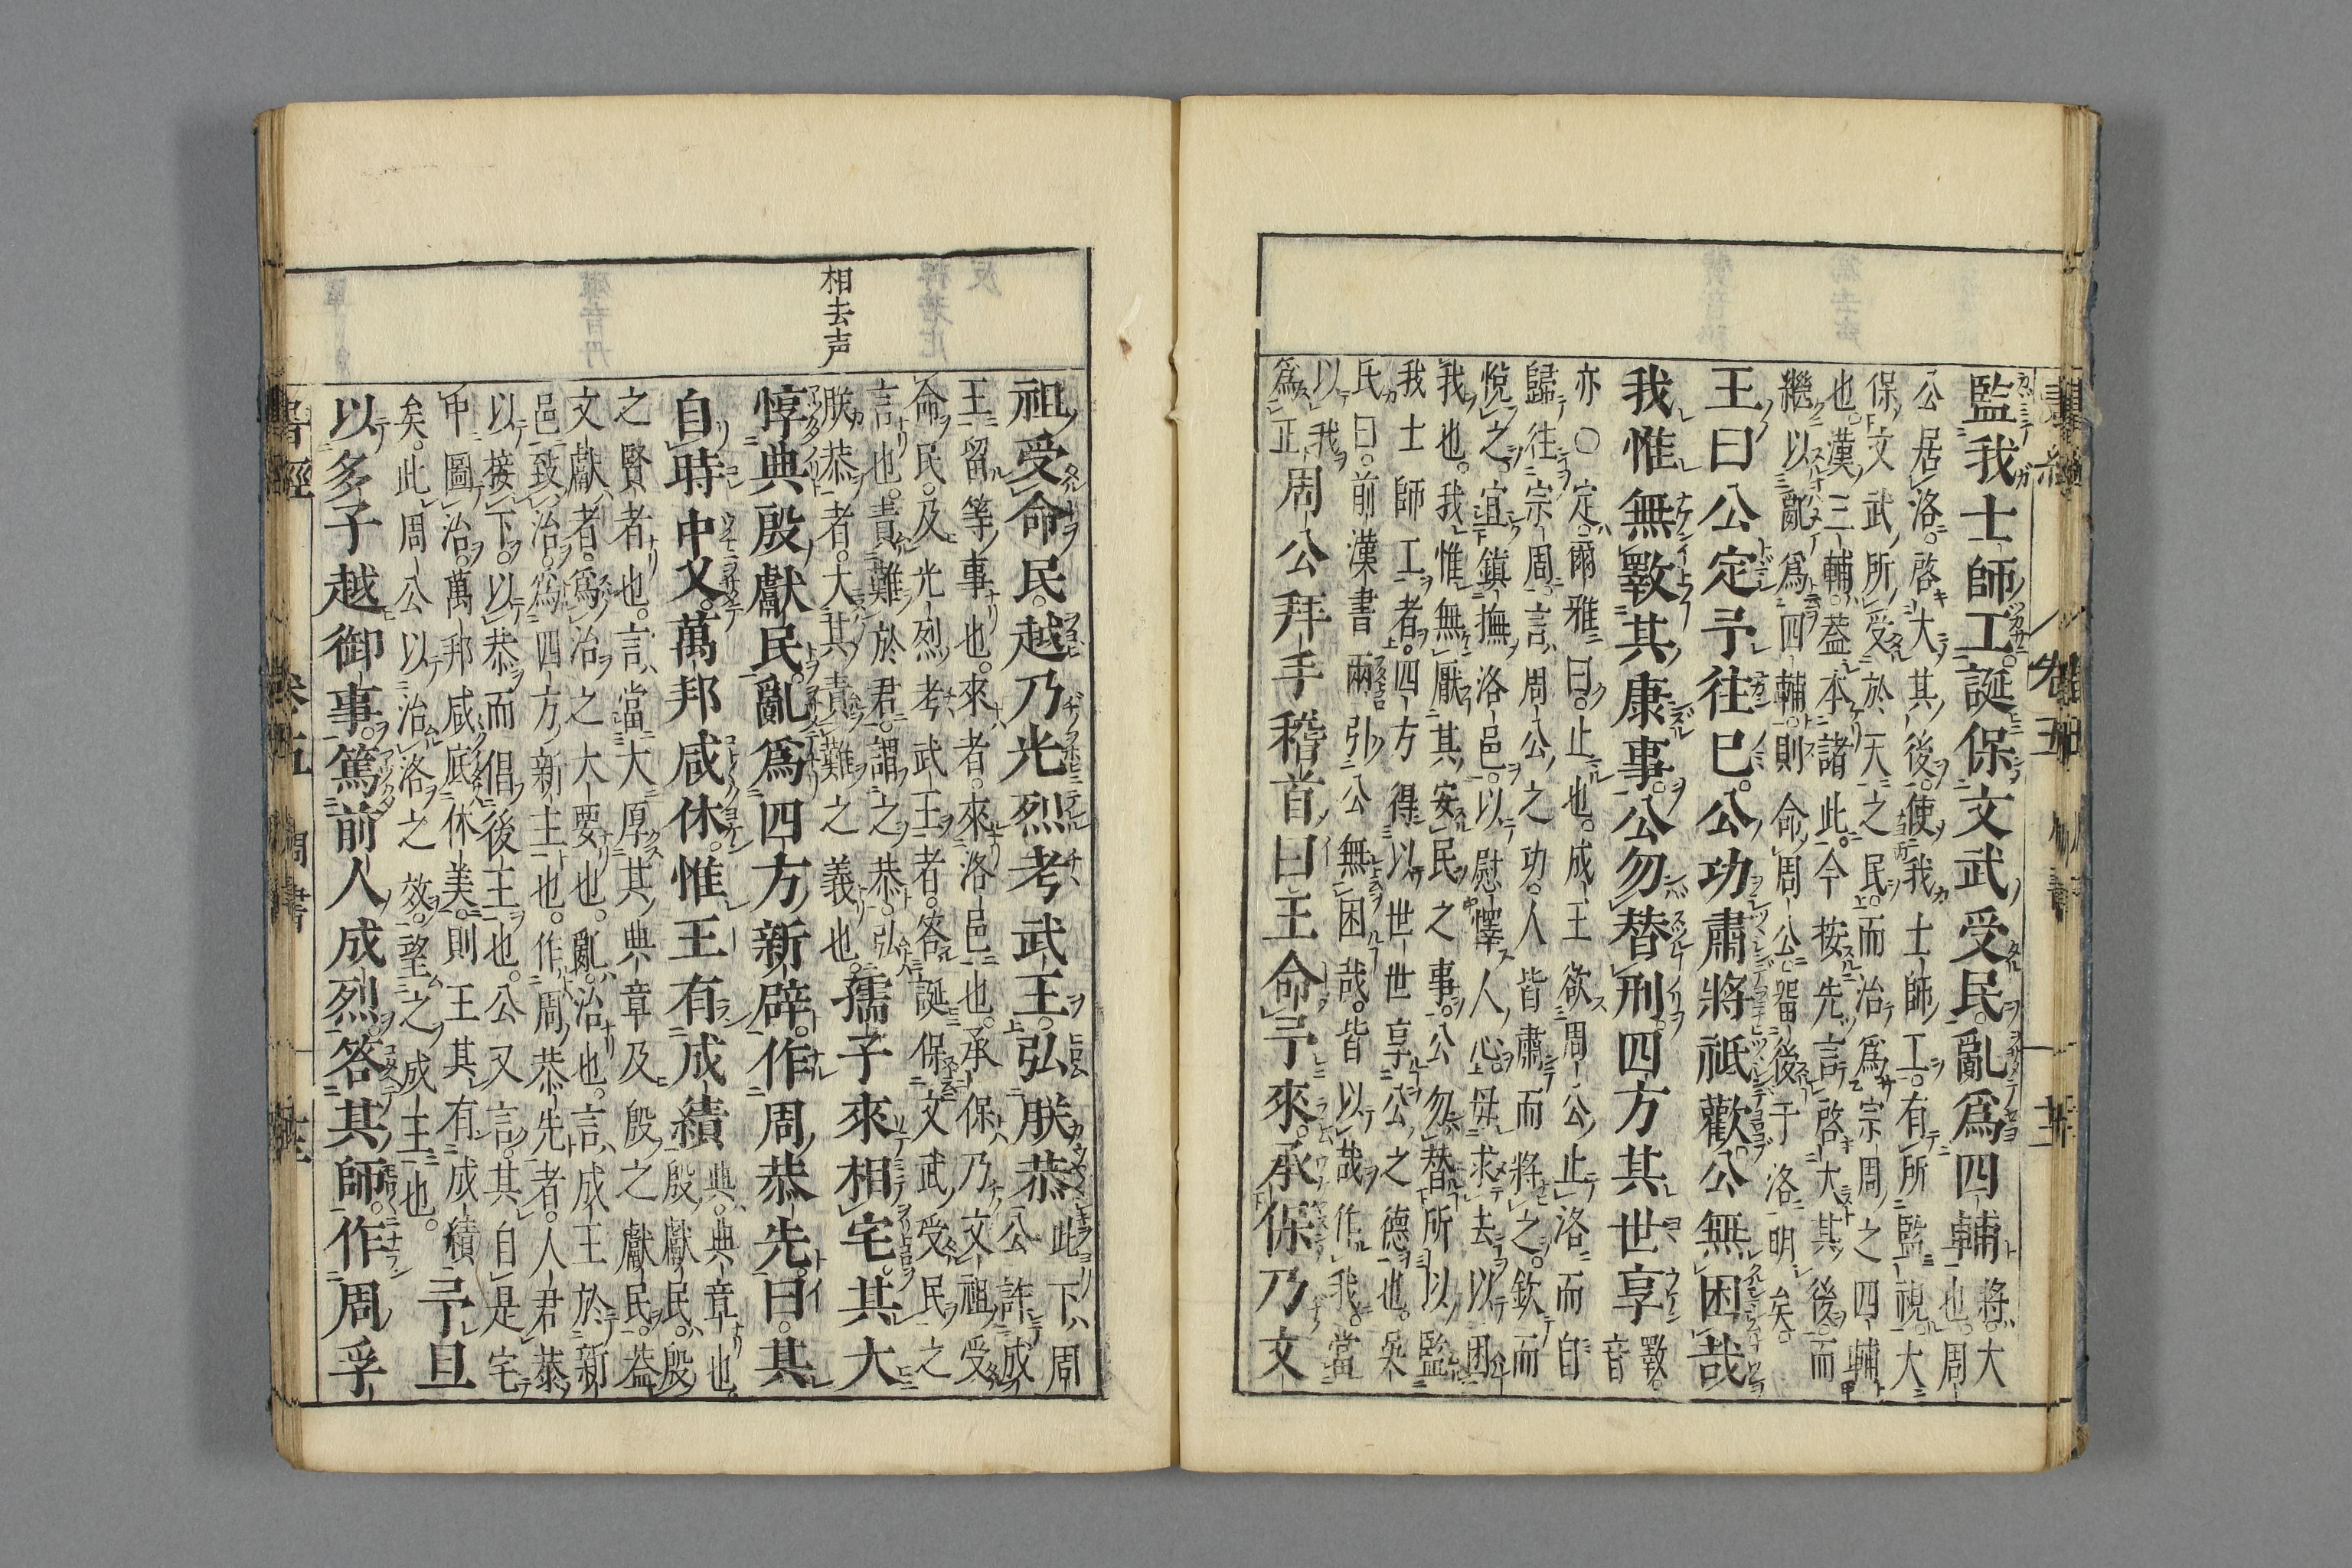 監我士師工。誕保文武受民。亂爲四輔
將。大
也。周
公居洛。啓大其後。使我士師工。有所監視大
保文武所受於天之民。而治爲宗周之四輔
也。漢三輔。蓋本諸此。今按先言啓大其後。而
繼以亂爲四輔。則命周公留後于洛。明矣。
王曰公定予往已。公功肅將祗歡。公無困哉
我惟無斁其康事。公勿替刑。四方其世享
斁。
音
亦○定。爾雅曰。止也。成王欲周公止洛。而自
歸往宗周。言周公之功。人皆肅而將之。欽而
悅之。宜鎮撫洛邑。以慰懌人心。毋求去以困
我也。我惟無厭其安民之事。公勿替所以監
我士師工者。四方得以世世享公之德也。吳
氏曰。前漢書兩引公無困哉。皆以哉作我。當
以我
爲正
周公拜手稽首曰王命予來。承保乃文
相去声
祖受命民。越乃光烈考武王。弘朕恭
此下。周
公許成
王留等事也。來者。來洛邑也。承保乃文祖受
命民。及光烈考武王者。答誕保文武受民之
言也。責難於君。謂之恭。弘
朕恭者。大其責難之義也。
孺子來相宅。其大
惇典殷獻民。亂爲四方新辟。作周恭先。曰。其
自時中乂。萬邦咸休。惟王有成績
典。典章也。
殷獻民。殷
之賢者也。言當大厚其典章及殷之獻民。蓋
文獻者。爲治之大要也。亂。治也。言成王於新
邑致治。爲四方新主也。作周恭先者。人君恭
以接下。以恭而倡後王也。公又言。其自是宅
中圖治。萬邦咸底休美。則王其有成績
矣。此周公以治洛之效。望之成王也。
予旦
以多子越御事。篤前人成烈。答其師。作周孚
書經
卷五
周書